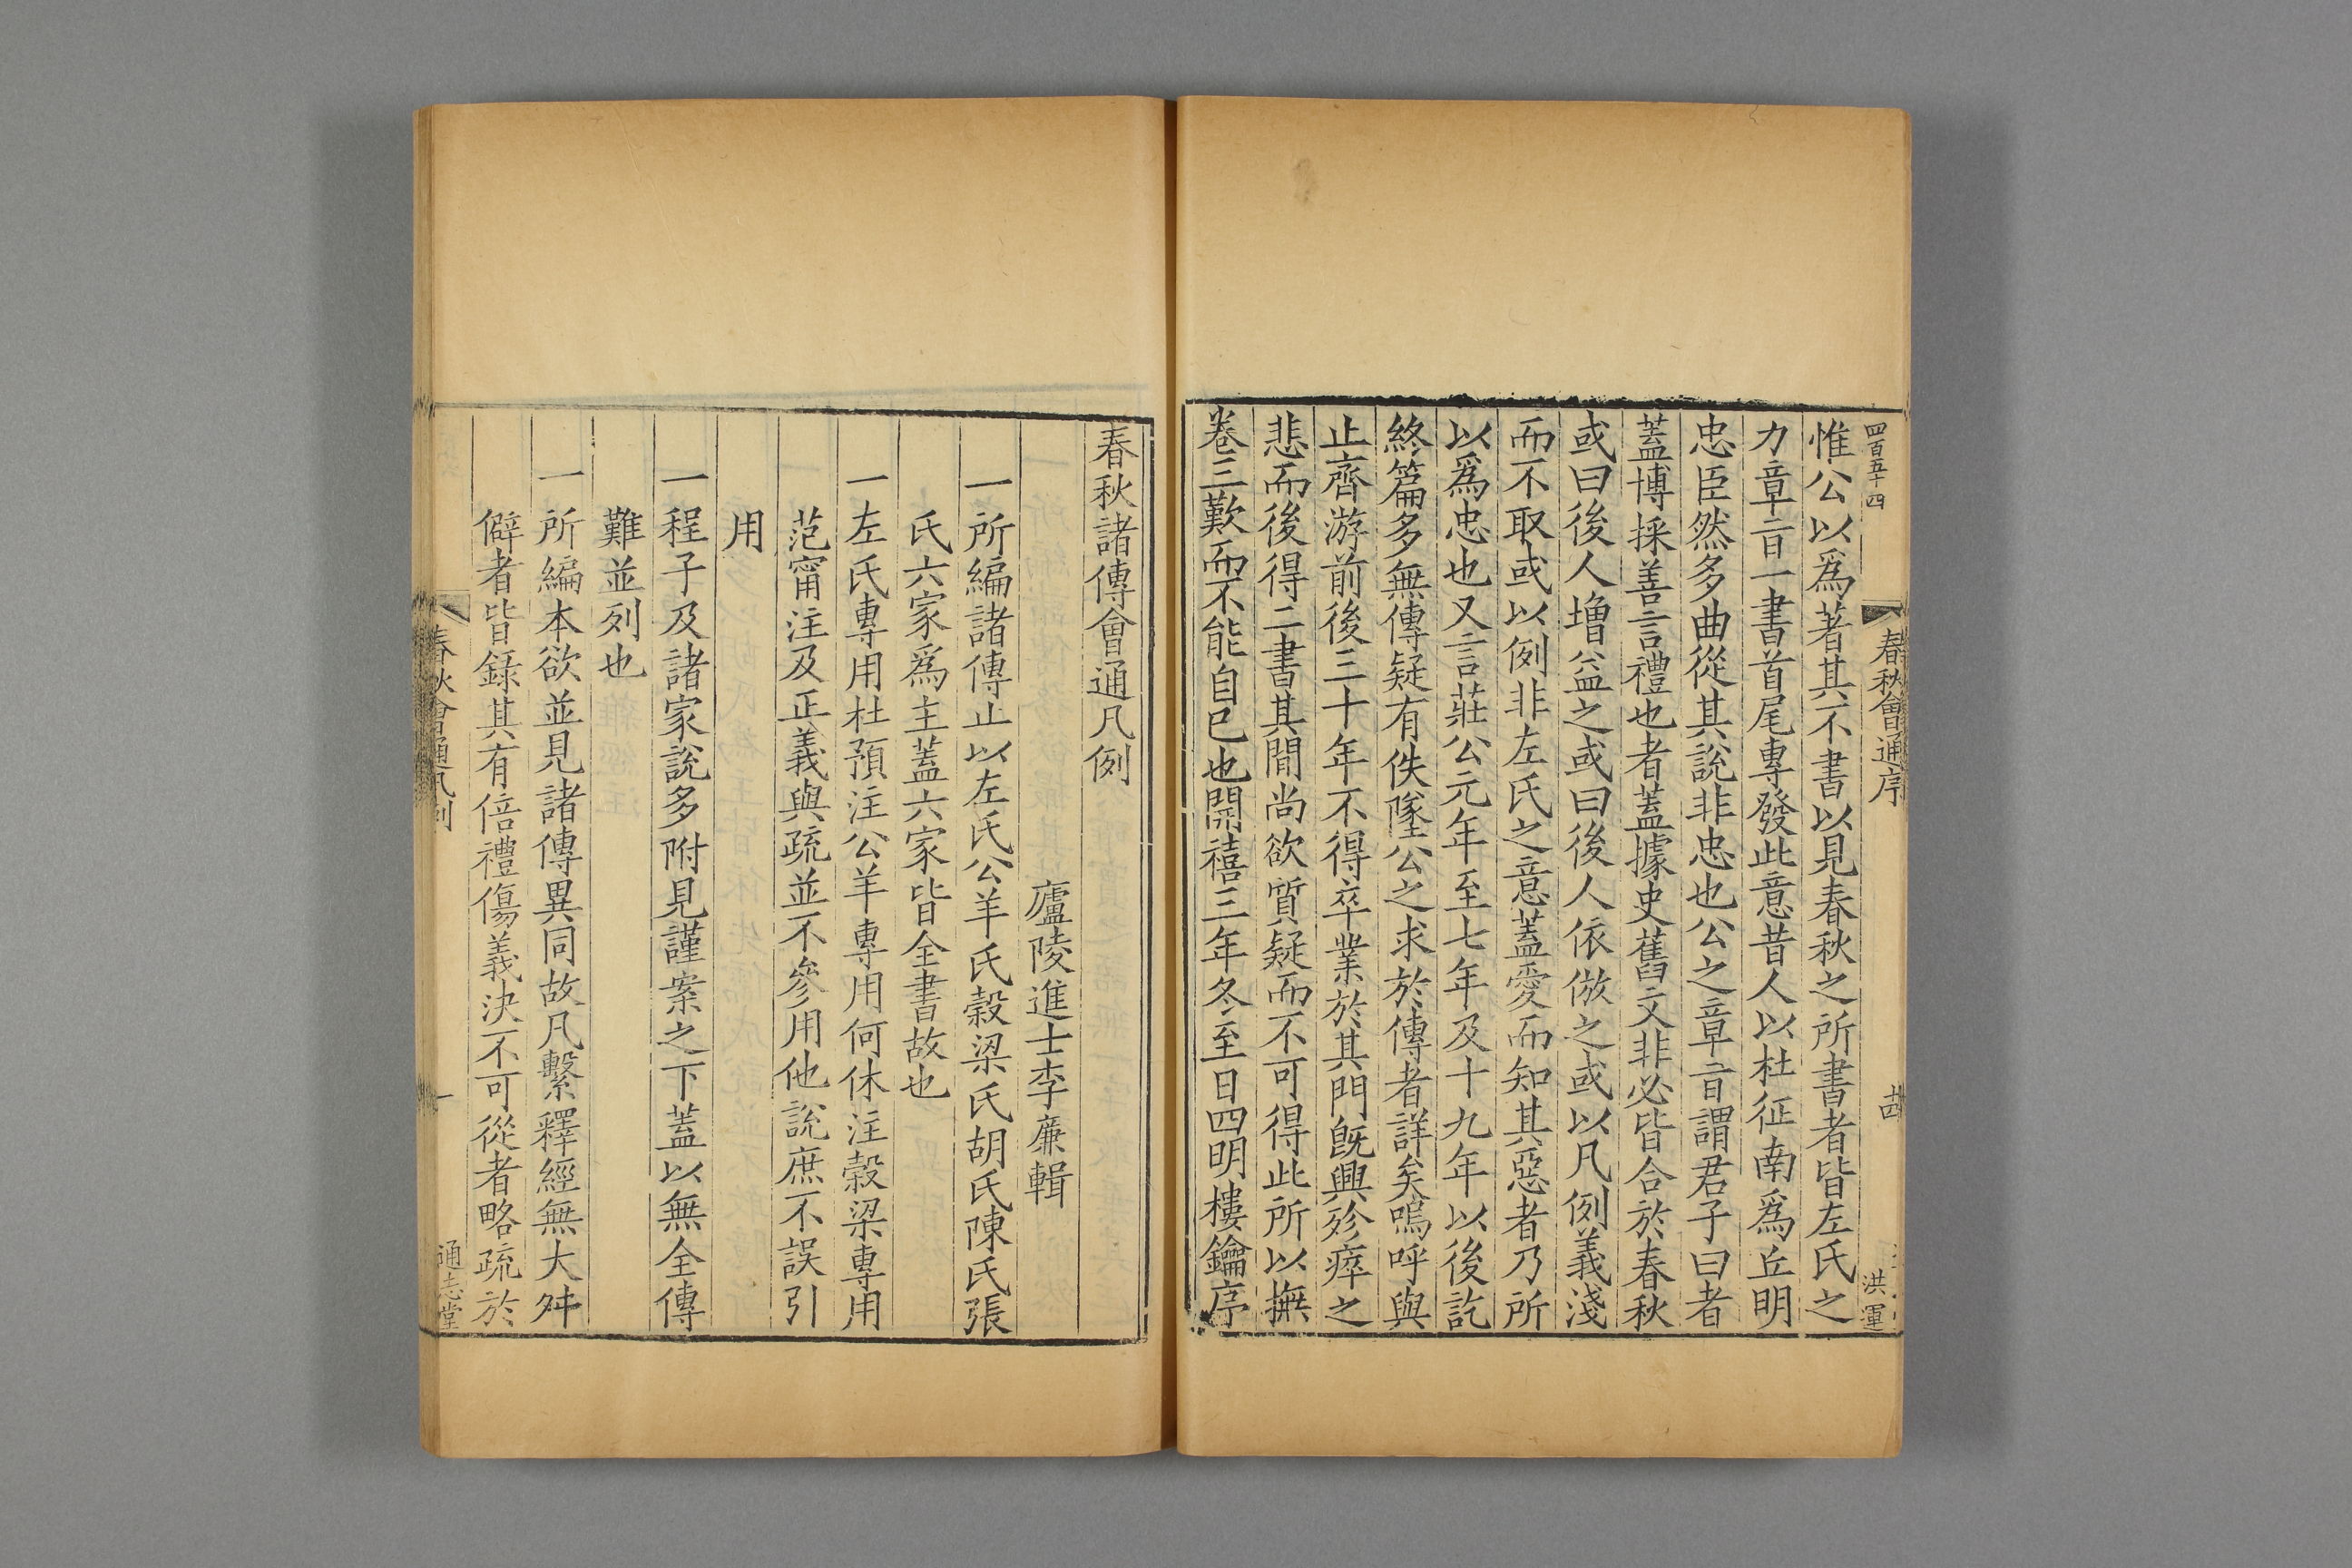 四百五十四
春秋會通序
洪運
惟公以爲著其不書以見春秋之所書者皆左氏之
力章㫖一書首尾專發此意昔人以杜征南爲丘明
忠臣然多曲從其說非忠也公之章㫖謂君子曰者
蓋博採善言禮也者蓋據史舊文非必皆合於春秋
或曰後人增益之或曰後人依倣之或以凡例義淺
而不取或以例非左氏之意蓋愛而知其惡者乃所
以爲忠也又言莊公元年至七年及十九年以後訖
終篇多無傳疑有佚墜公之求於傳者詳矣嗚呼與
止齊游前後三十年不得卒業於其門既興殄瘁之
悲而後得二書其間尚欲質疑而不可得此所以撫
卷三歎而不能自已也開禧三年冬至日四明樓鑰序
春秋諸傳會通凡例
廬陵進士李廉輯
一所編諸傳止以左氏公羊氏穀梁氏胡氏陳氏張
氏六家爲主蓋六家皆全書故也
一左氏專用杜預注公羊專用何休注穀梁專用
范甯注及正義與疏並不參用他說庶不誤引
用
一程子及諸家說多附見謹案之下蓋以無全傳
難並列也
一所編本欲並見諸傳異同故凡繫釋經無大舛
僻者皆錄其有倍禮傷義決不可從者略疏於
春秋會通凡例
一
通志堂